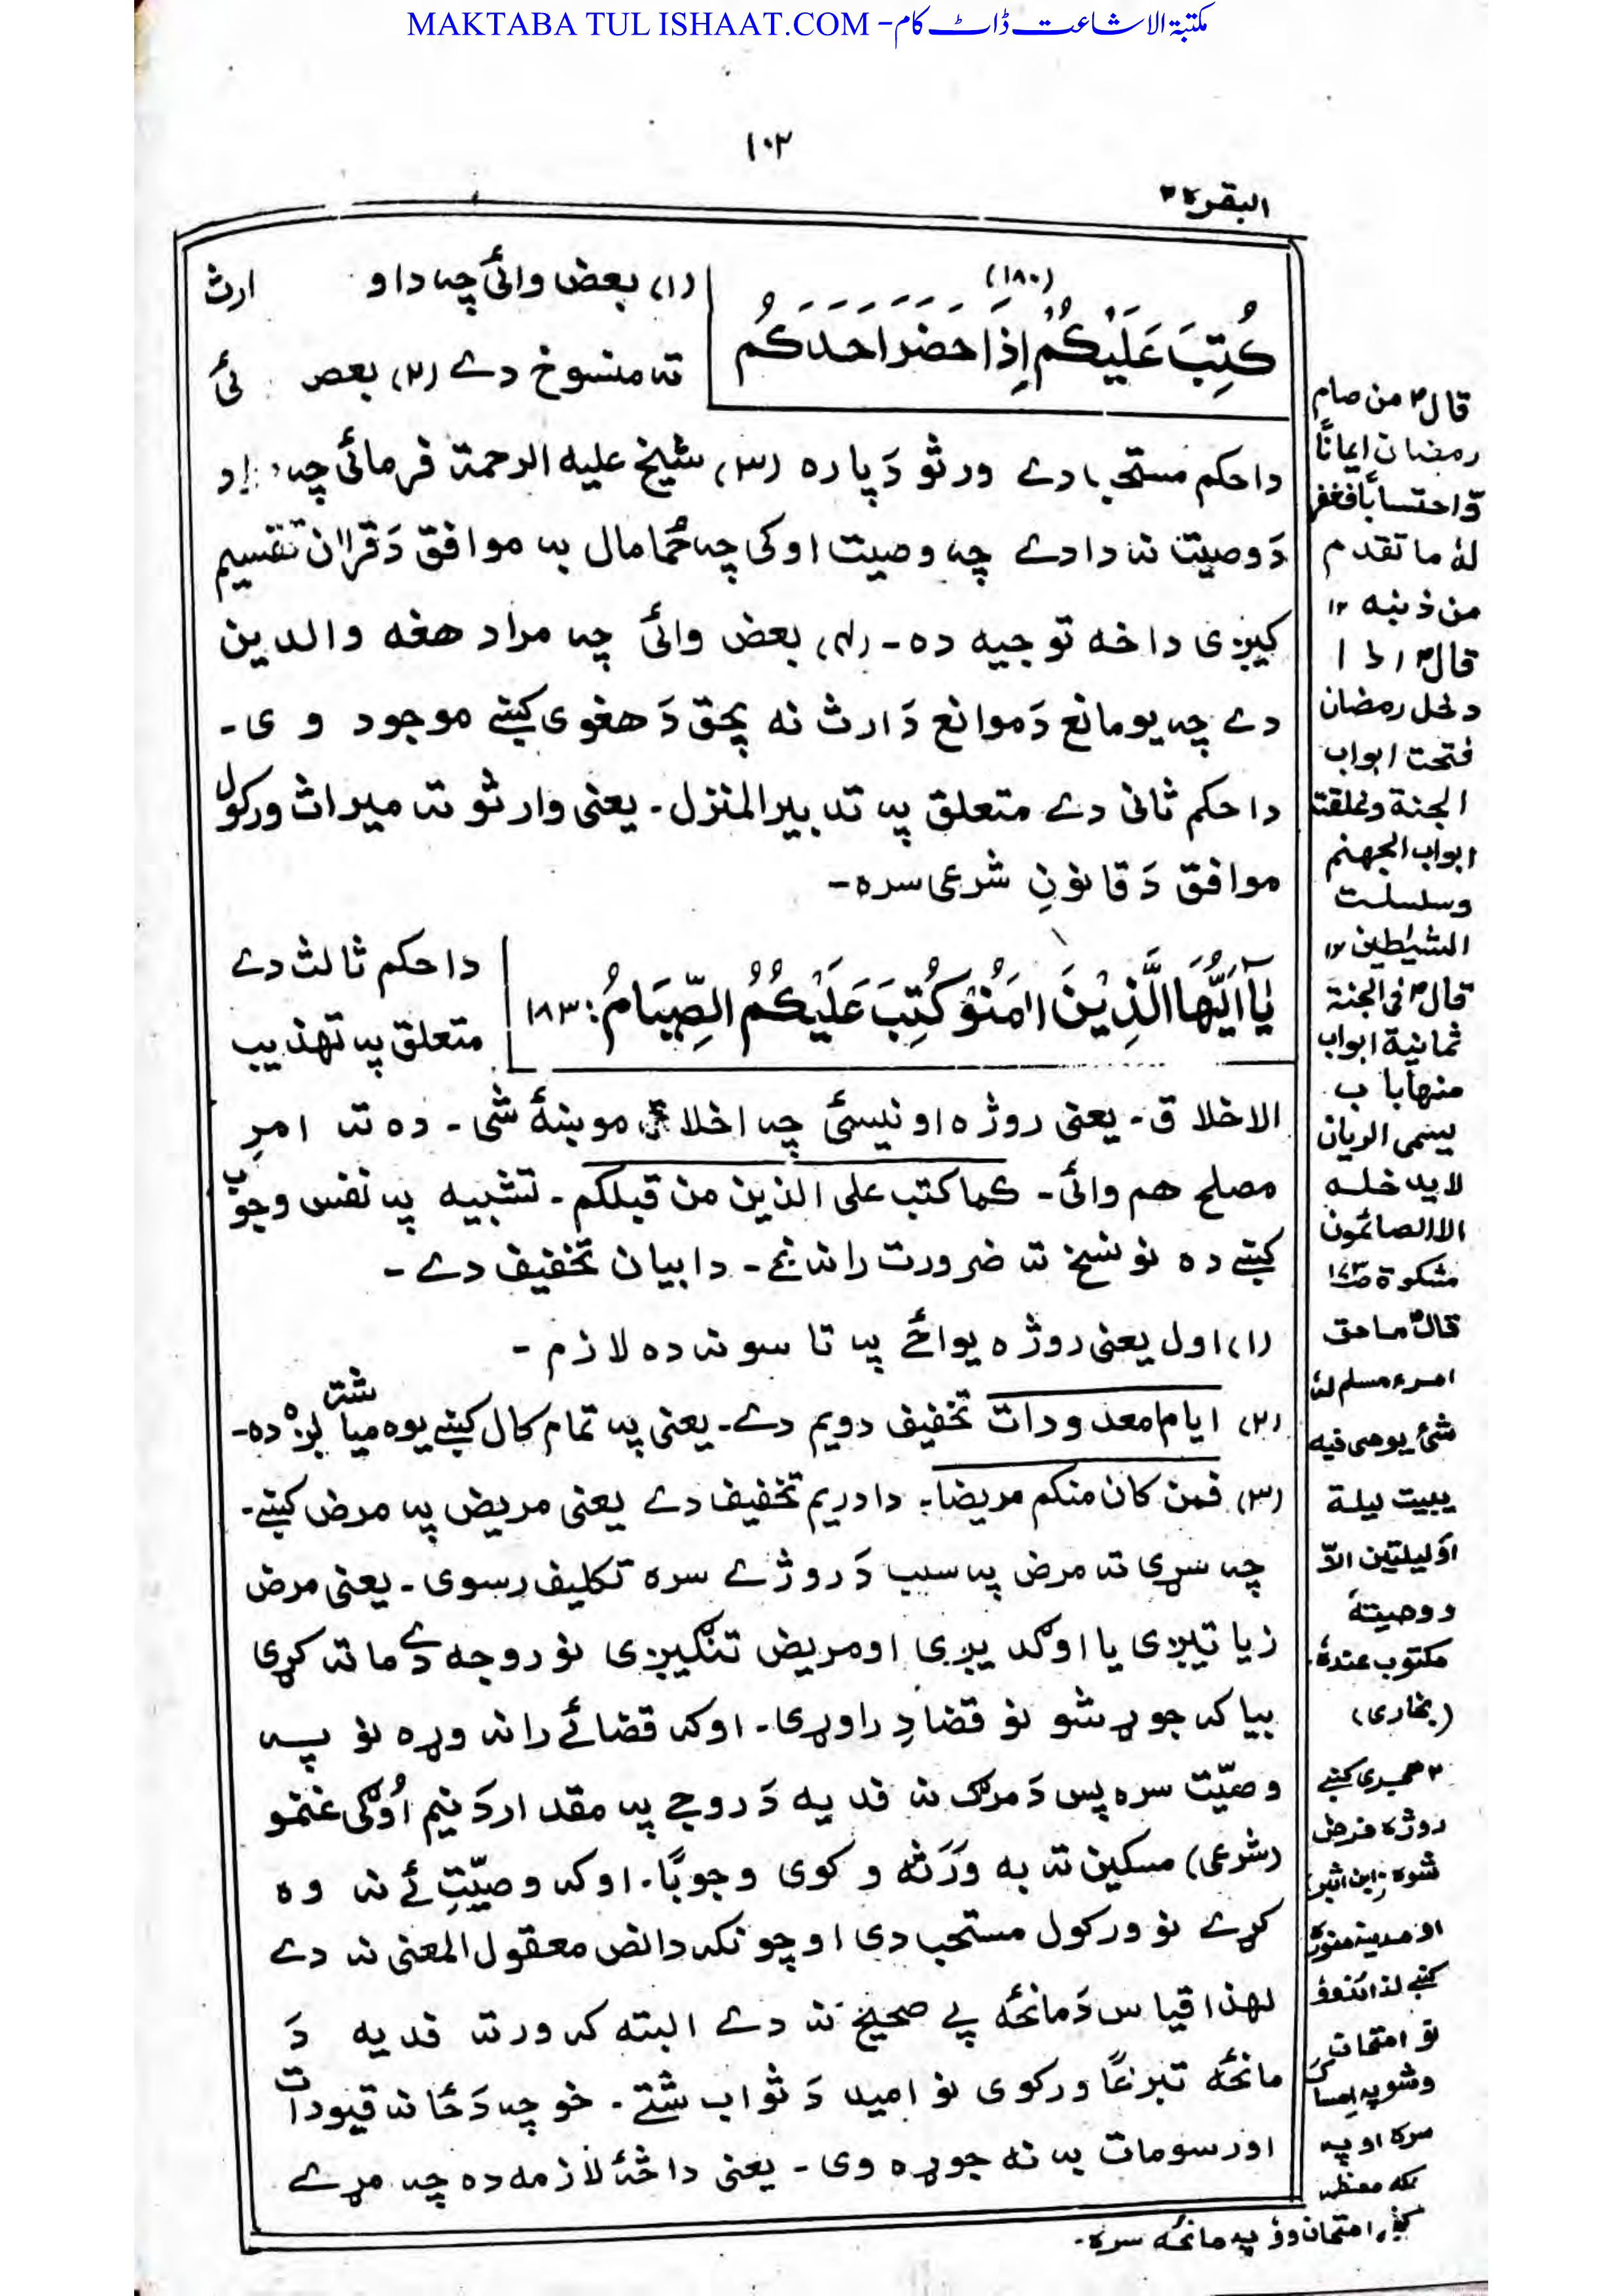 MAKTABA TUL ISHAAT.COM - مکتبة الاشاعت ڈاٹ کام
۱۰۲
البقرة ۲
(۱۸۰)
كُتِبَ عَلَيْكُمْ إِذَا حَضَرَ اَحَدَكُمُ
(۱) بعض وائی چہ دا و ارث
تہ منسوخ دے (۲) بعض ئی
دا حکم مستحب دے ورثو دَپارہ (۳) شیخ علیہ الرحمة فرمائی چہ
دَوصیت نہ دا دے چہ وصیت اوکی چہ حُما مال بہ موافق دَقرآن تقسیم
کیږی داخہ توجیہ دہ۔ (۴) بعض وائی چہ مراد ھغہ والدین
دے چہ یو مانع دَموانع دَارث نہ پحق دَھغوی کښے موجود وی۔
دا حکم ثانی دے متعلق پہ تدبیر المنزل۔ یعنی وارثو تہ میراث ورکول
موافق دَقانونِ شرعی سرہ۔
يٰٓاَيُّهَا الَّذِيْنَ اٰمَنُوْ كُتِبَ عَلَيْكُمُ الصِّيَامُ: ۱۸۳
دا حکم ثالث دے
متعلق پہ تھذیب
الاخلاق۔ یعنی روژہ اونیسئی چہ اخلاق مو ښۂ شی۔ دہ تہ امرِ
مصلح ھم وائی۔ کما کتب علی الذین من قبلکم۔ تشبیہ پہ نفس وجوب
کښے دہ نو نسخ تہ ضرورت را نہ غے۔ دا بیان تخفیف دے۔
(۱) اول یعنی روژہ یواځے پہ تاسو نہ دہ لازم۔
(۲) ایام معدودات تخفیف دویم دے۔ یعنی پہ تمام کال کښے یوہ میاشت لږہ دہ۔
(۳) فمن کان منکم مریضا: دا دریم تخفیف دے یعنی مریض پہ مرض کښے۔
چہ سړی تہ مرض پہ سبب دَروژے سرہ تکلیف رسوی۔ یعنی مرض
زیاتیږی یا اوګدیږی او مریض تنګیږی نو روجہ دے ماتہ کړی
بیا کہ جوړ شو نو قضا دِ راوړی۔ او کہ قضائے را نہ وړہ نو پہ
وصیّت سرہ پس دَمرګ نہ فدیہ دَروجے پہ مقدار دَنیم اُوګی غنمو
(شرعی) مسکین تہ بہ وَرَثہ وکوی وجوبًا۔ او کہ وصیّت ئے نہ وہ
کړے نو ورکول مستحب دی او چونکہ دا نص معقول المعنی نہ دے
لهذا قیاس دَمانځہ پے صحیح نہ دے البتہ کہ ورتہ فدیہ دَ
مانځہ تبرعًا ورکوی نو امید دَثواب شتے۔ خو چہ دَځانہ قیودات
اورسومات بہ نہ جوړہ وی۔ یعنی داځۂ لازمہ دہ چہ مړے
قالؐ من صام
رمضان ایمانًا
وّاحتسابًا فغفر
لهٗ ما تقدم
من ذنبه ۱۲
قالؐ اذا
دخل رمضان
فتحت ابواب
الجنة وغلقت
ابواب الجهنم
وسلسلت
الشیٰطین ۱۲
قالؐ فی الجنة
ثمانیة ابواب
منها باب
یسمی الریان
لا یدخله
الا الصائمون
مشکوة
قالؐ ما حق
امرء مسلم لهٗ
شیٔ یوصی فیه
یبیت لیلة
اولیلتین الاّ
ووصیتهٗ
مکتوب عندهٗ
(بخاری)
۲ ھجری کښے
روژہ فرض
شوہ: ابن اثیر
او مدینہ منورہ
نو امتحان
وشو پہ امساک
سرہ او پہ
مکہ معظمہ
کښے امتحان وؤ پہ مانځہ سرہ۔